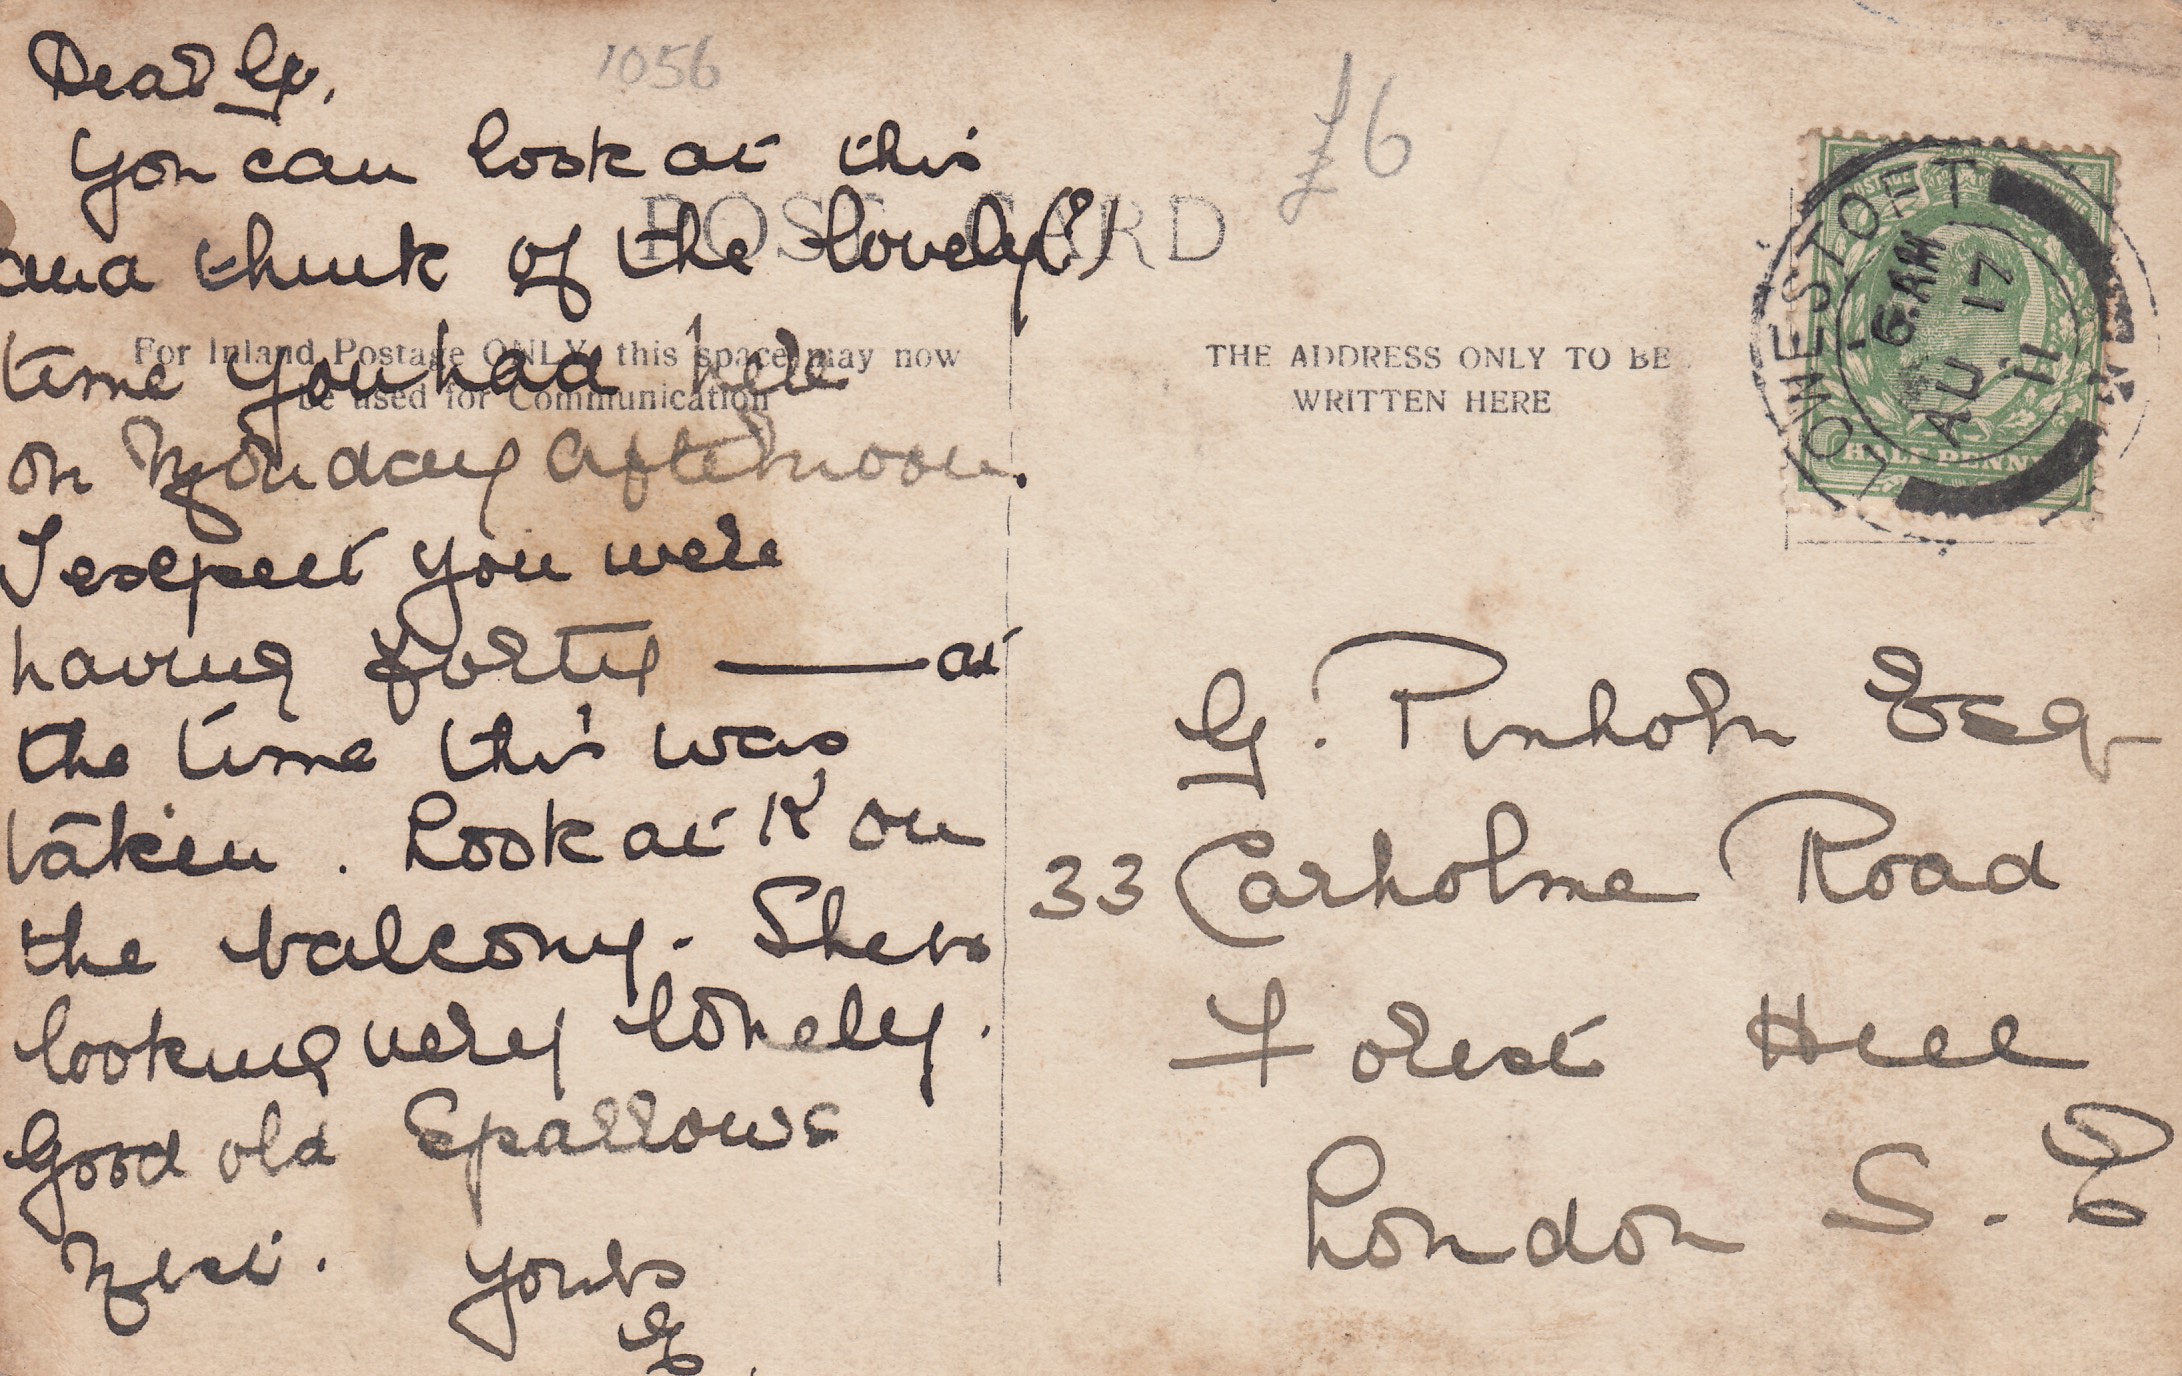 1056
£6
Dear G.
You can look at this
and think of the lovely(?)
time you had here
on Monday afternoon.
I expect you were
having forty —— at
the time this was
taken. Look at K on
the balcony. She is
looking very lonely.
Good old Sparrows
Nest. Yours
G.
POST CARD
For Inland Postage ONLY, this space may now
be used for Communication
THE ADDRESS ONLY TO BE
WRITTEN HERE
POSTAGE
HALF PENNY
LOWESTOFT
6. AM
AU 17
11
G. Esq
33 Carholme Road
Forest Hill
London S. E